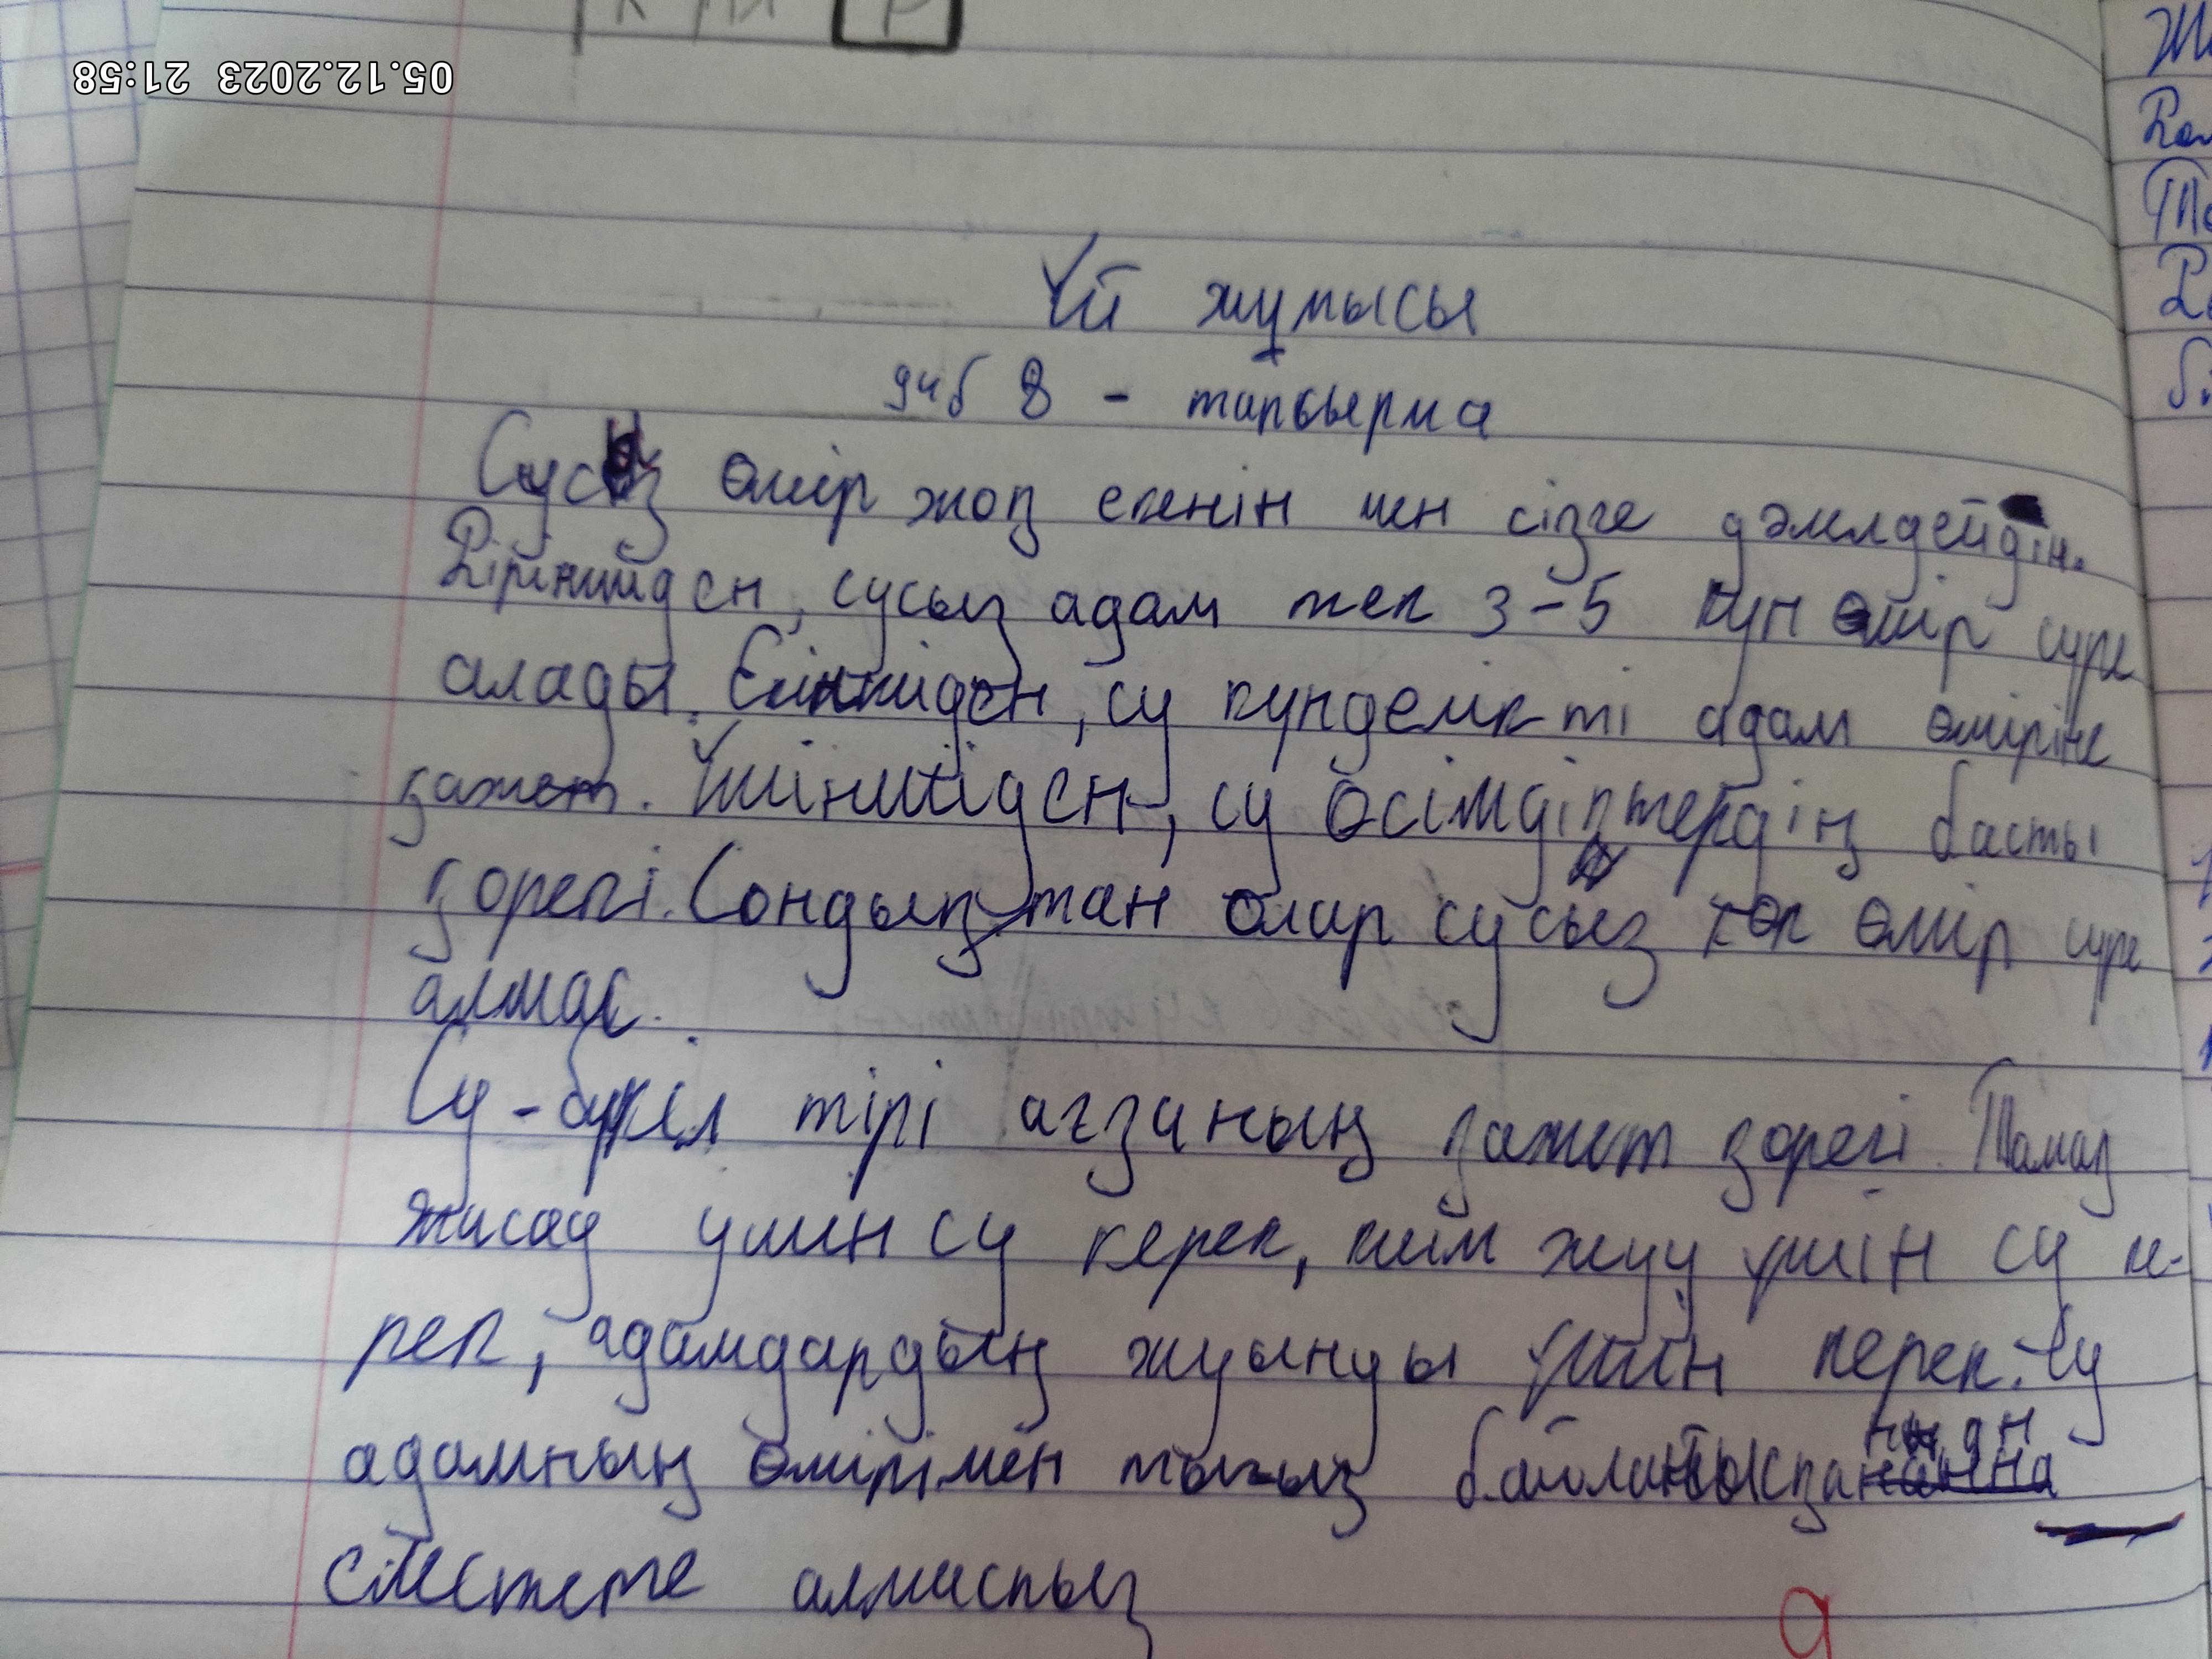 05.12.2023 21:58
Үй жұмысы
94б 8 - тапсырма
Сусыз өмір жоқ екенін мен сізге дәлелдейдін.
Біріншіден, сусыз адам тек 3-5 күн өмір сүре
алады. Екіншіден, су күнделікті адам өміріне
қажет. Үшіншіден, су өсімдіктердің басты
қорегі. Сондықтан олар сусыз көп өмір сүре
алмас.
Су - бүкіл тірі ағзаның қажет қорегі. Тамақ
жасау үшин су керек, киім жуу үшін су ке-
рек, адамдардың жуынуы үшін керек. Су
адамның өмірімен тығыз байланысқаннан
елестете алмаспыз
9